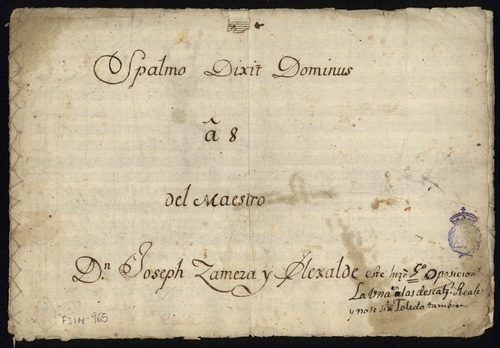 Spalmo Dixit Dominus
â 8
del Maestro
Dn. Joseph Zameza y Elexalde este hizo Oposicion
La Una a las descalz. Reale
y Toledo tambien
FJIM 965